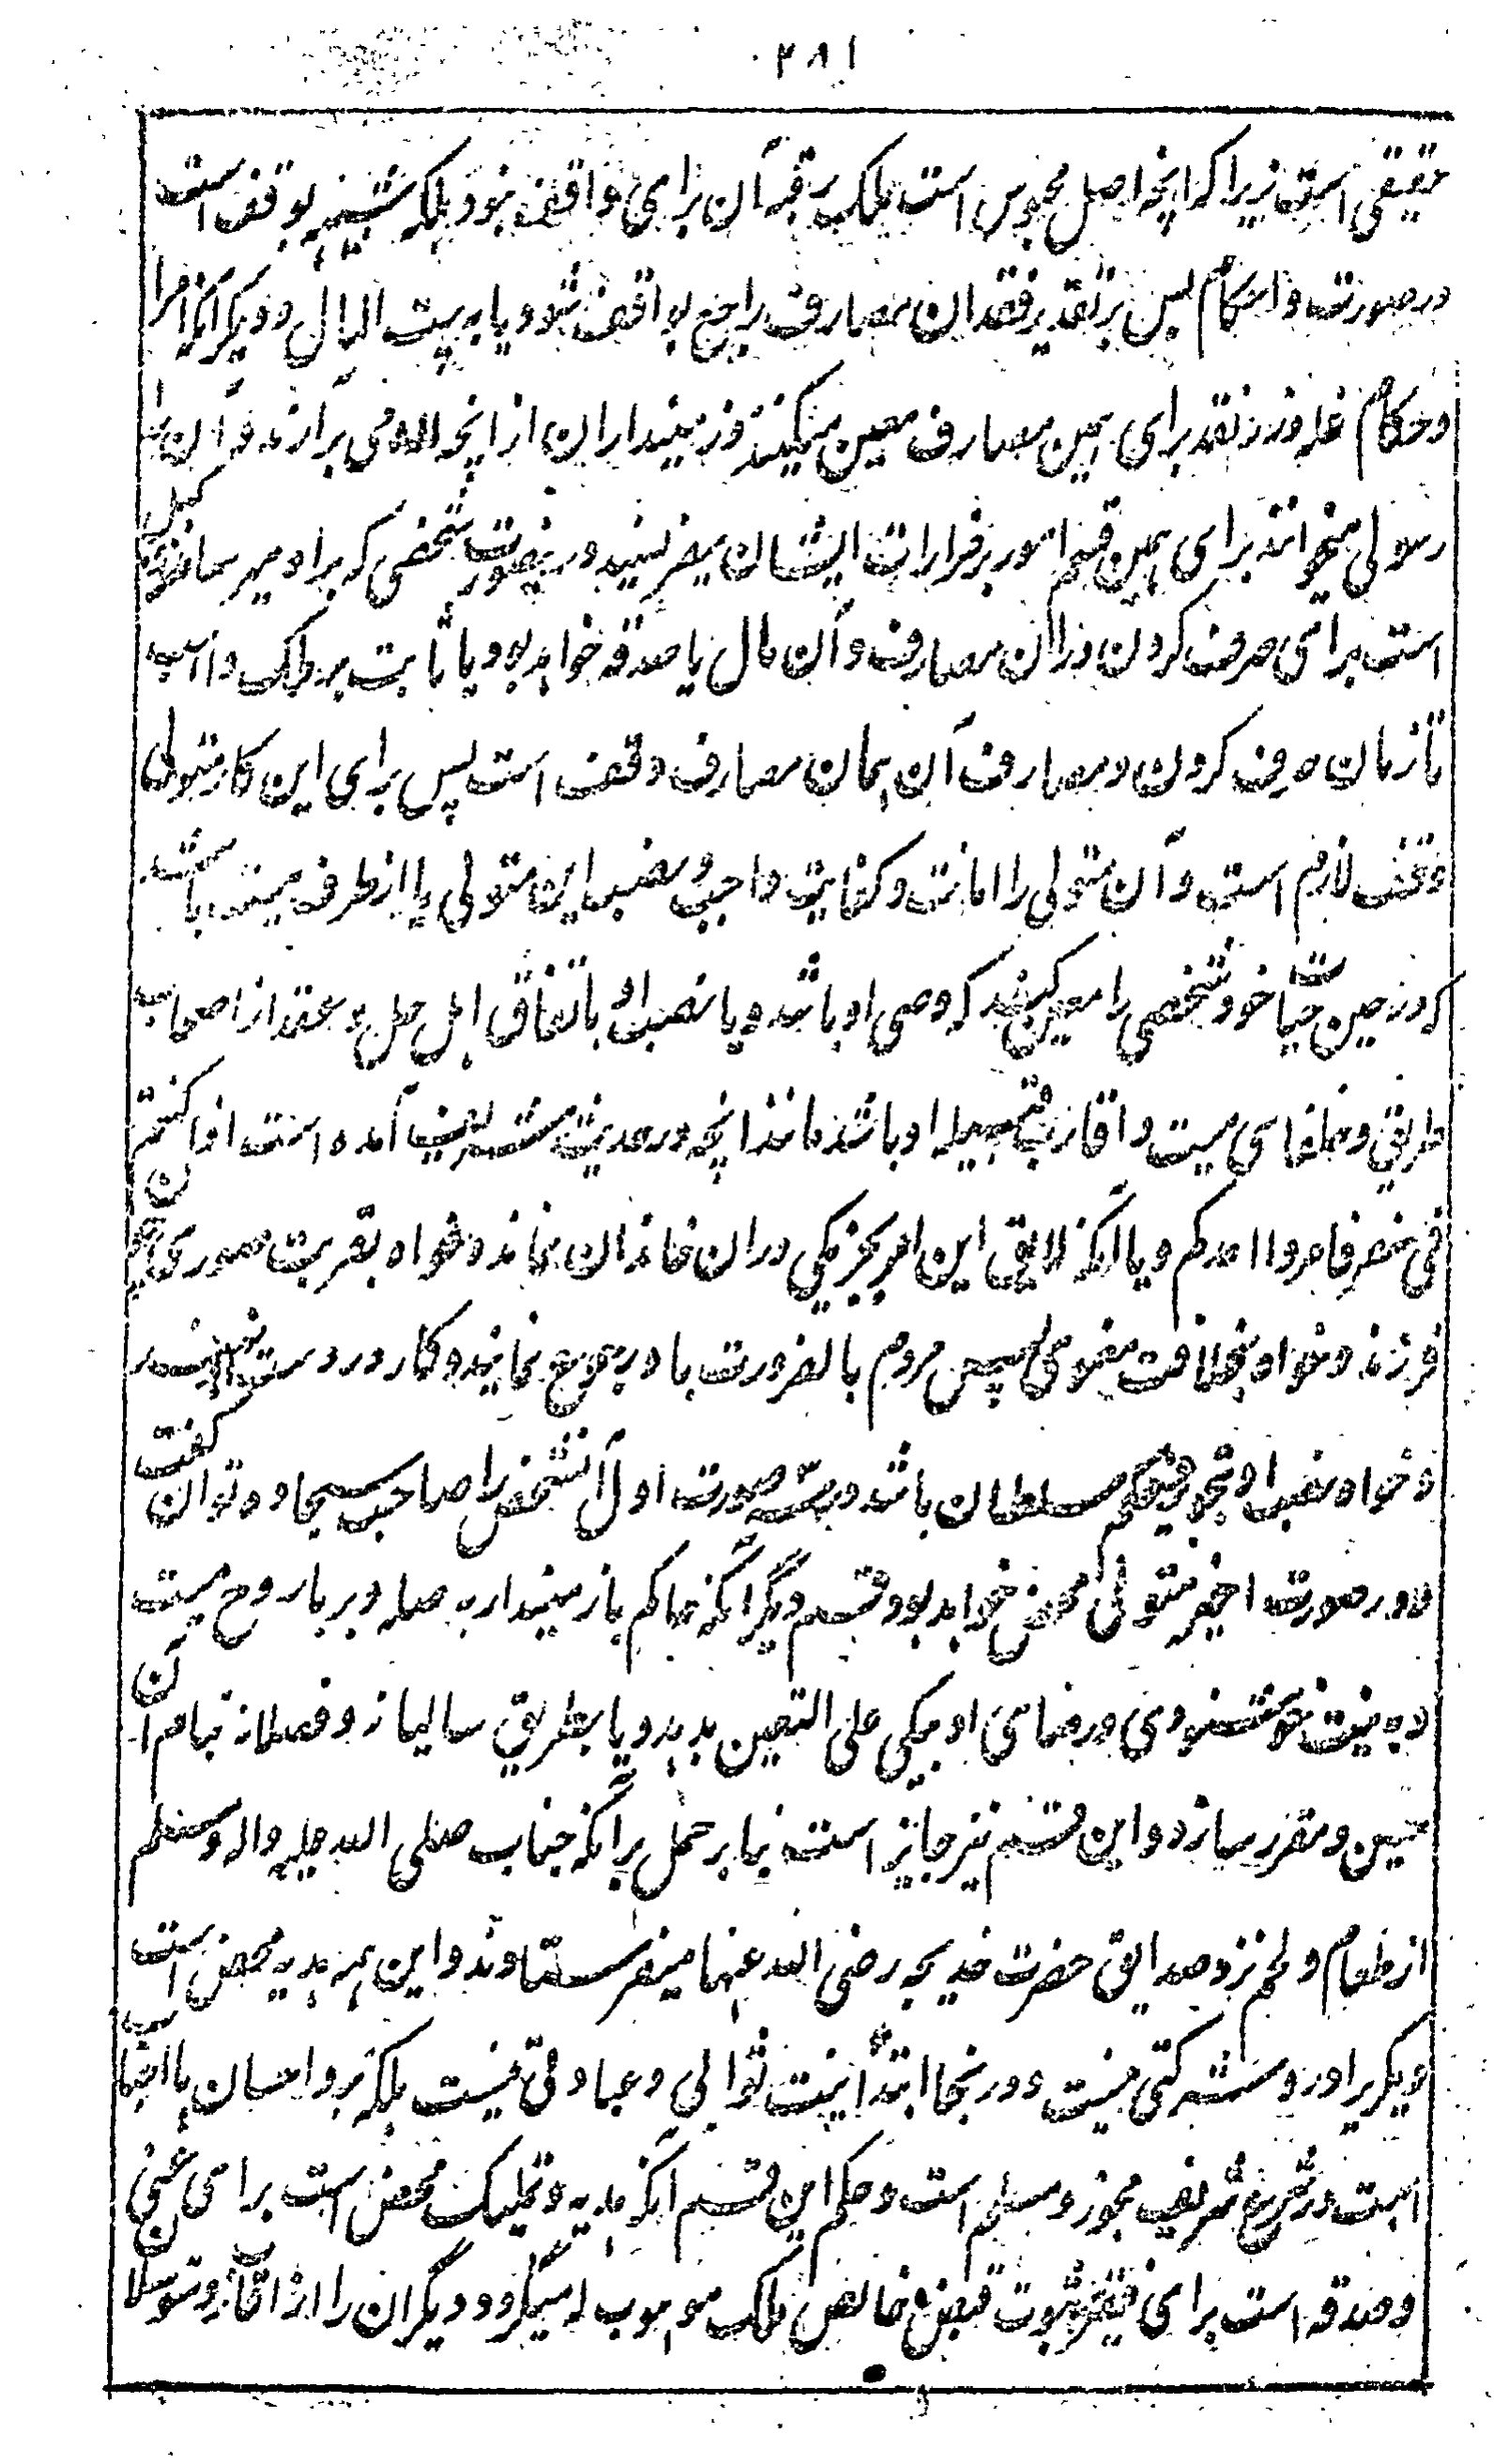 ۲۸۱
حقیقی است زیرا که انچه اصل محبوس است ملک رقبه آن برای واقف نبود بلکه شبیه بوقف است
در صورت و احکام پس بر تقدیر فقدان مصارف راجع بواقف شود یا به بیت المال و دیگر آنکه امرا
و حکام غله و زر نقد برای همین مصارف معین میکنند و زمینداران از انچه می برآرند و آن را
رسولی میخوانند برای همین قسم امور بر مزارات ایشان میفرستند درینصورت شخصی که بر او میرسانند وکیل
است برای صرف کردن دران مصارف و آن مال یا صدقه خواهد بود یا ثابت بر ملک واهب
تا زمان صرف کردن و مصارف آن همان مصارف وقف است پس برای این کار متولی
وقف لازم است و آن متولی را امانت و کفایت واجب و نصب این متولی یا از طرف میت باشد
که در حین حیات خود شخصی را معین کند که وصی او باشد و یا نصب او باتفاق اهل حل و عقد از اصحاب
طریق و خلفای میت و اقارب قبیله او باشد مانند انچه در حدیث شریف آمده است اذا کنتم
فی سفر فامروا احدکم و یا آنکه لائق این امر بجز یکی دران خاندان نماند و خواه بقربت صوری همچون
فرزند و خواه بخلافت معنوی پس مردم بالضرورت باو رجوع نمایند و کار در دست
و خواه نصب او بحکم سلطان باشد در سه صورت اول آنشخص را صاحب سجاده توان گفت
و در صورت اخیر متولی محض خواهد بود قسم دیگر آنکه حاکم یا زمیندار به صله و بر بار وح میت
و به نیت خوشنودی و رضای او بیکی علی التعین بدهد و یا بطریق سالیانه و فصلانه بنام آن
معین و مقرر سازد و این قسم نیز جایز است بنا بر حمل بر آنکه جناب صلی الله علیه واله وسلم
از طعام و لحم نزد صدایق حضرت خدیجه رضی الله عنها میفرستادند و این همه هدیه محض است
دیگر را در و شرکتی نیست و در ینجا ابتداً نیت ثوابی و عبادتی نیست بلکه بر و احسان با احباب
است و در شرع شریف مجوز و مسلم است و حکم این قسم آنکه هدیه و تملیک محض است برای غنی
و صدقه است برای فقیر بثبوت قبض خالص ملک موهوب له میگردد و دیگران را از اقارب و متوسلان